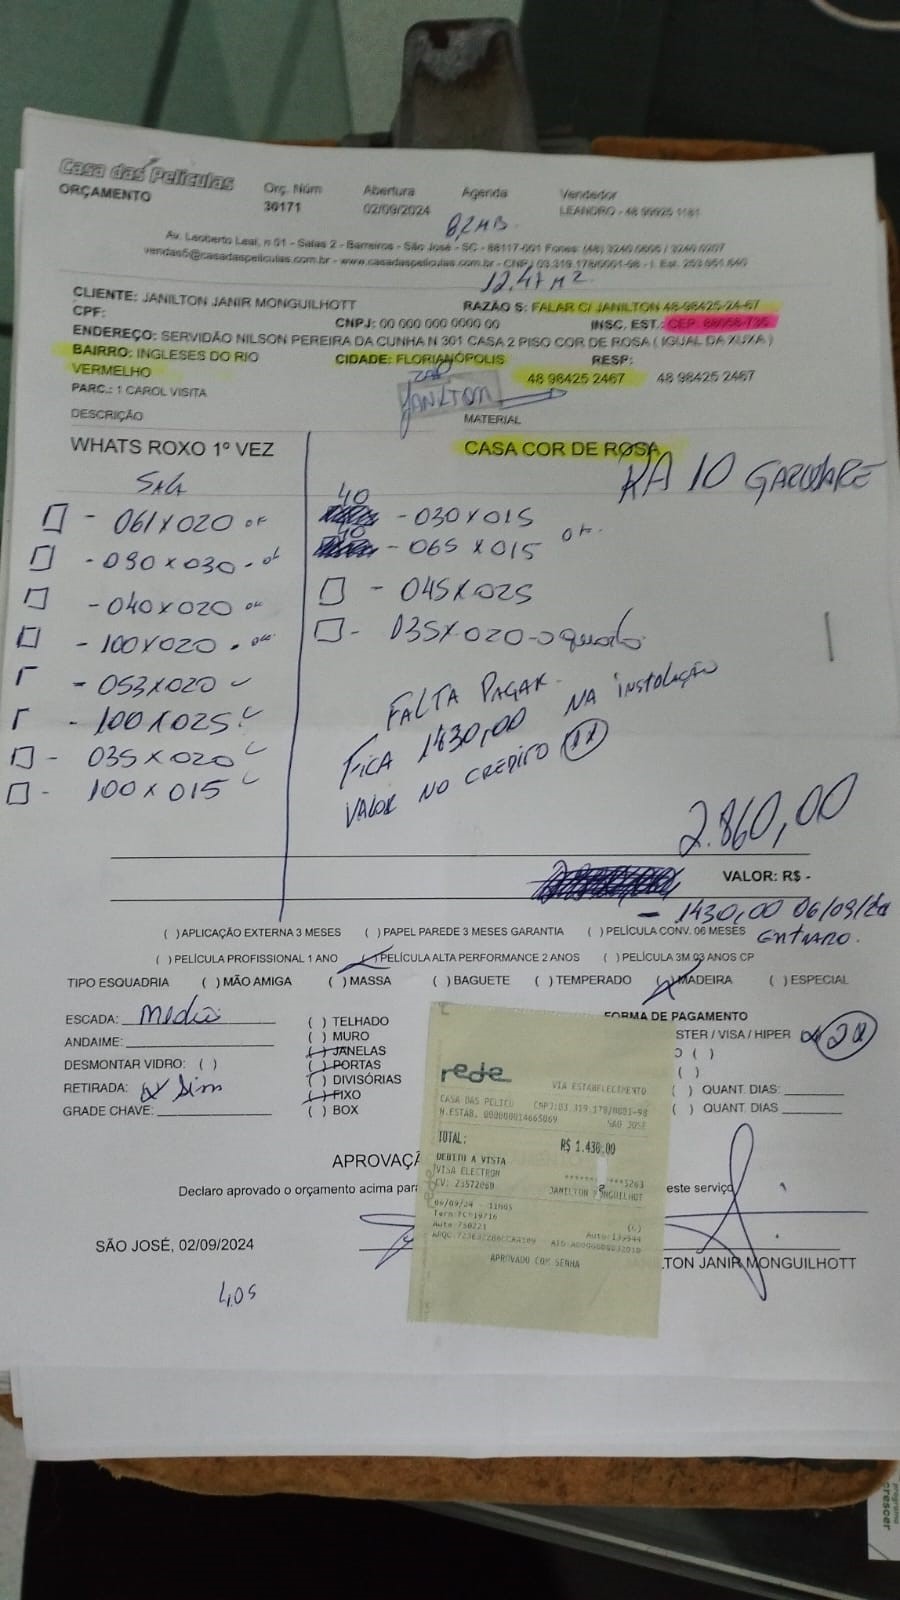 Casa das Películas
ORÇAMENTO
Orç. Núm
30171
Abertura
02/09/2024
Agenda
Vendedor
LEANDRO - 48 99925 1181
Av. Leoberto Leal, n 01 - Salas 2 - Barreiros - São José - SC - 88117-001 Fones: (48) 3240 0606 / 3240 0207
vendas5@casadaspeliculas.com.br - www.casadaspeliculas.com.br - CNPJ 03.319.178/0001-98 - I. Est.
12.47 M²
CLIENTE: JANILTON JANIR MONGUILHOTT
RAZÃO S: FALAR C/ JANILTON 48-98425-24-67
CPF:
CNPJ: 00 000 000 0000 00
INSC. EST.: CEP:
ENDEREÇO: SERVIDÃO NILSON PEREIRA DA CUNHA N 301 CASA 2 PISO COR DE ROSA ( IGUAL DA XUXA )
BAIRRO: INGLESES DO RIO VERMELHO
CIDADE: FLORIANÓPOLIS
RESP:
48 98425 2467
48 98425 2467
PARC.: 1 CAROL VISITA
JANILTOM
DESCRIÇÃO
MATERIAL
WHATS ROXO 1º VEZ
CASA COR DE ROSA
RA 10 GARWARE
SALA
- 061 x 020 ok
- 090 x 030 - ok
- 040 x 020 ok
- 100 x 020 - ok
- 053 x 020
- 100 x 025
- 035 x 020
- 100 x 015
40
- 030 x 015
40
- 065 x 015 ok
- 045 x 025
- 035 x 020 -> quarto
FALTA PAGAR
FICA 1430,00 NA INSTALAÇÃO
VALOR NO CRÉDITO
2.860,00
VALOR: R$ -
- 1430,00 06/09/24
ENTRADO.
( ) APLICAÇÃO EXTERNA 3 MESES
( ) PAPEL PAREDE 3 MESES GARANTIA
( ) PELÍCULA CONV. 06 MESES
( ) PELÍCULA PROFISSIONAL 1 ANO
( ) PELÍCULA ALTA PERFORMANCE 2 ANOS
( ) PELÍCULA 3M 03 ANOS CP
TIPO ESQUADRIA
( ) MÃO AMIGA
( ) MASSA
( ) BAGUETE
( ) TEMPERADO
( ) MADEIRA
( ) ESPECIAL
ESCADA: Media
ANDAIME:
DESMONTAR VIDRO: ( )
RETIRADA: (x) Sim
GRADE CHAVE:
( ) TELHADO
( ) MURO
( ) JANELAS
( ) PORTAS
( ) DIVISÓRIAS
( ) FIXO
( ) BOX
FORMA DE PAGAMENTO
STER / VISA / HIPER
( )
( )
( ) QUANT. DIAS:
( ) QUANT. DIAS
rede
VIA ESTABELECIMENTO
CASA DAS PELICU CNPJ:03.319.178/0001-98
N.ESTAB. 000000014665069 SAO JOSE
TOTAL: R$ 1.430,00
DEBITO A VISTA
VISA ELECTRON
CV: 23572060 JANILTON MONGUILHOT
06/09/24 - 11h05
Auto:750221
APROVADO COM SENHA
APROVAÇÃ
Declaro aprovado o orçamento acima para
este serviço
SÃO JOSÉ, 02/09/2024
LTON JANIR MONGUILHOTT
4,05